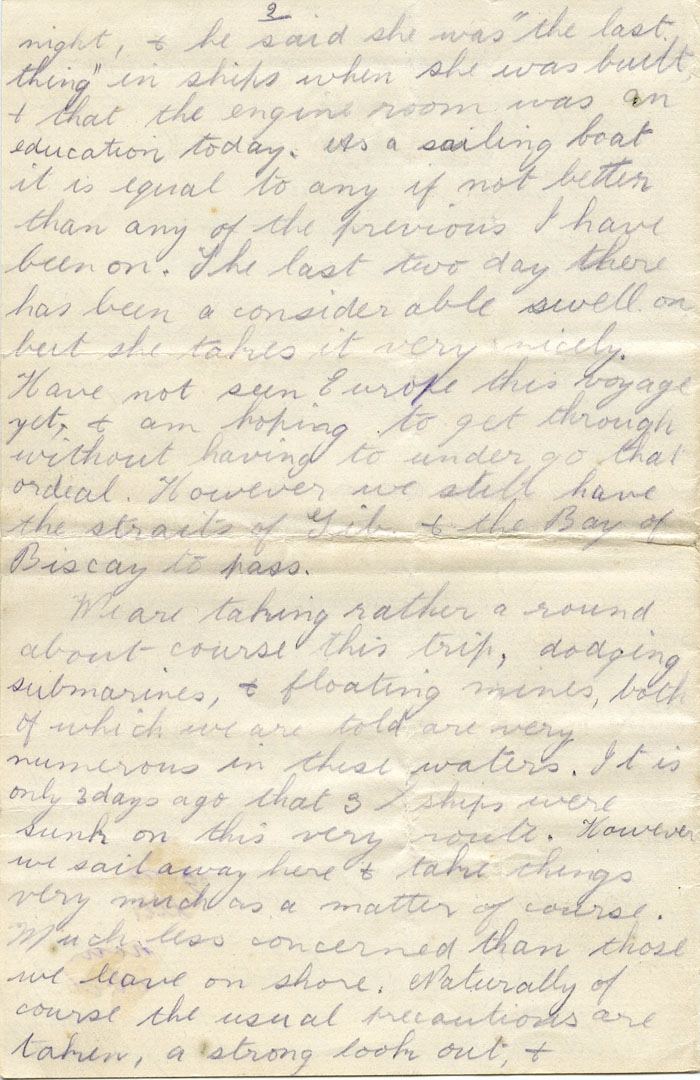 2
night, & he said she was "the last
thing" in ships when she was built,
& that the engine room was an
education today. As a sailing boat
it is equal to any if not better
than any of the previous I have
been on. The last two day there
has been a considerable swell on
but she takes it very nicely.
Have not seen Europe this voyage
yet, & am hoping to get through
without having to undergo that
ordeal. However we still have
the straits of Gib. & the Bay of
Biscay to pass.
We are taking rather a round
about course this trip, dodging
submarines, & floating mines, both
of which we are told are very
numerous in these waters. It is
only 3 days ago that 3 ships were
sunk on this very route. However
we sail away here & take things
very much as a matter of course.
Much less concerned than those
we leave on shore. Naturally of
course the usual precautions are
taken, a strong look out, &